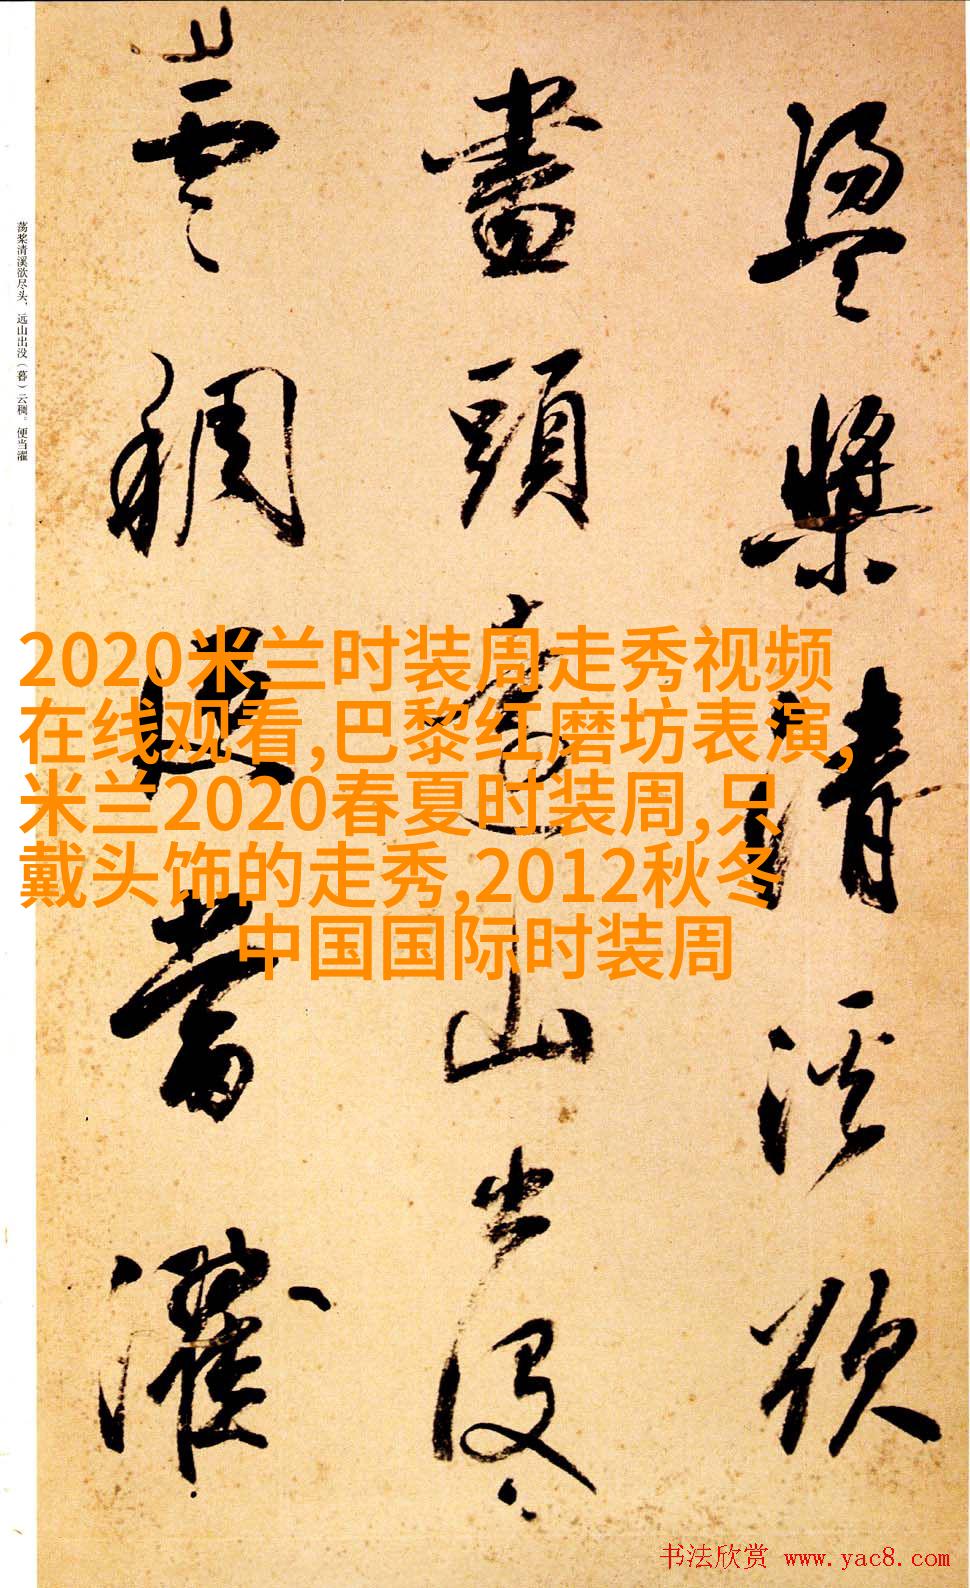 盪槳清溪欲
盡頭遠山出沒
雲稠便當濯
荡桨清溪欲尽头，远山出没（暮）云稠。便当濯
2020米兰时装周走秀视频
在线观看,巴黎红磨坊表演,
米兰2020春夏时装周,只
戴头饰的走秀,2012秋冬
中国国际时装周
书法欣赏 www.yac8.com